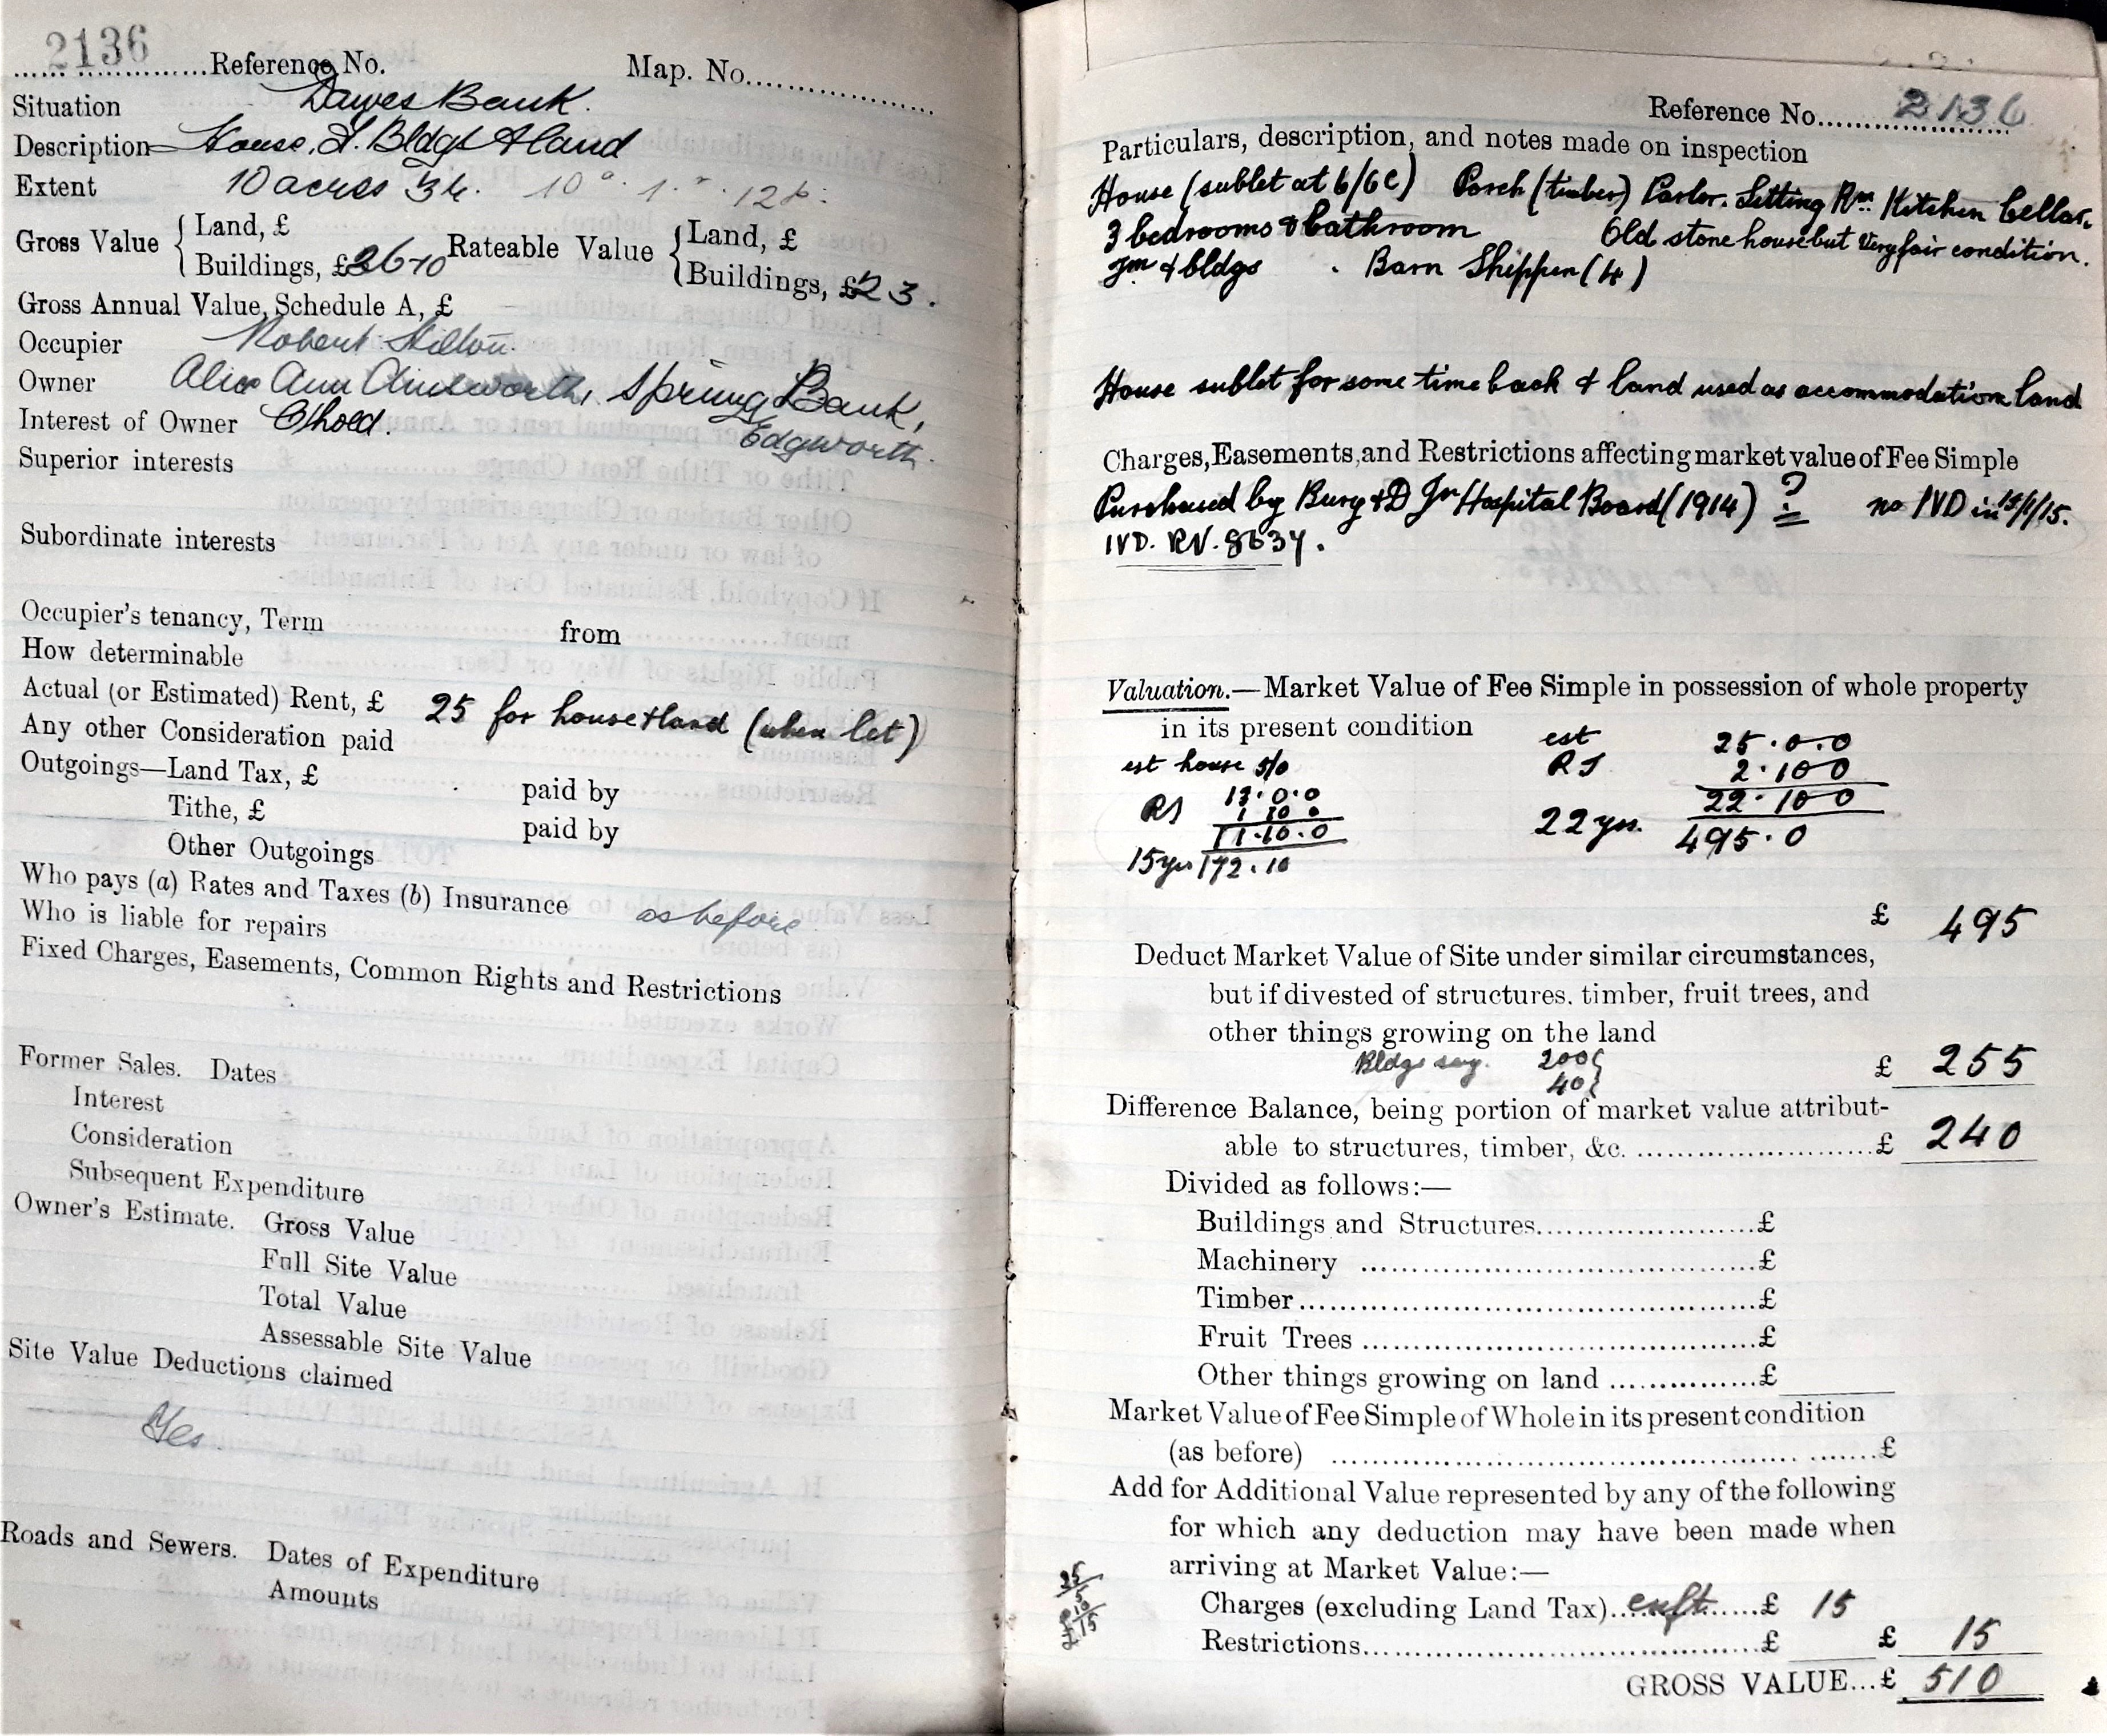 2136
Reference No. Map. No.
Situation Dawes Bank.
Description House, F. Bldgs & land
Extent 10 acres 34. 10a. 1.r. 12p.
Gross Value Land, £ Rateable Value Land, £
Buildings, £26-10 Buildings, £23.
Gross Annual Value, Schedule A, £
Occupier Robert Hilton.
Owner Alice Ann Ainsworth, Spring Bank,
Edgworth.
Interest of Owner C/hold.
Superior interests
Subordinate interests
Occupier's tenancy, Term from
How determinable
Actual (or Estimated) Rent, £ 25 for house & land (when let)
Any other Consideration paid
Outgoings—Land Tax, £ paid by
Tithe, £ paid by
Other Outgoings
Who pays (a) Rates and Taxes (b) Insurance as before
Who is liable for repairs
Fixed Charges, Easements, Common Rights and Restrictions
Former Sales. Dates
Interest
Consideration
Subsequent Expenditure
Owner's Estimate. Gross Value
Full Site Value
Total Value
Assessable Site Value
Site Value Deductions claimed
Yes
Roads and Sewers. Dates of Expenditure
Amounts
Reference No. 2136
Particulars, description, and notes made on inspection
House (sublet at 6/6 C) Porch (timber) Parlor. Sitting Rm. Kitchen Cellar.
3 bedrooms & bathroom Old stone house but very fair condition.
Fm & bldgs . Barn Shippen (4)
House sublet for some time back & land used as accommodation land
Charges, Easements, and Restrictions affecting market value of Fee Simple
Purchased by Bury & D Jr Hospital Board (1914) ? no IVD in 15/1/15.
IVD. RV. 8637.
Valuation.—Market Value of Fee Simple in possession of whole property
in its present condition
est 25.0.0
RS 2.10 0
22.10 0
22 yrs. 495.0
est house 5/0
RS 13.0.0
1 10 0
11.10.0
15 yrs 172.10
£ 495
Deduct Market Value of Site under similar circumstances,
but if divested of structures. timber, fruit trees, and
other things growing on the land
Bldgs say. 200
40
£ 255
Difference Balance, being portion of market value attribut-
able to structures, timber, &c. £ 240
Divided as follows:—
Buildings and Structures £
Machinery £
Timber £
Fruit Trees £
Other things growing on land £
Market Value of Fee Simple of Whole in its present condition
(as before) £
Add for Additional Value represented by any of the following
for which any deduction may have been made when
arriving at Market Value:—
25
5
10
£15
Charges (excluding Land Tax) enft. £ 15
Restrictions £ £ 15
GROSS VALUE...£ 510